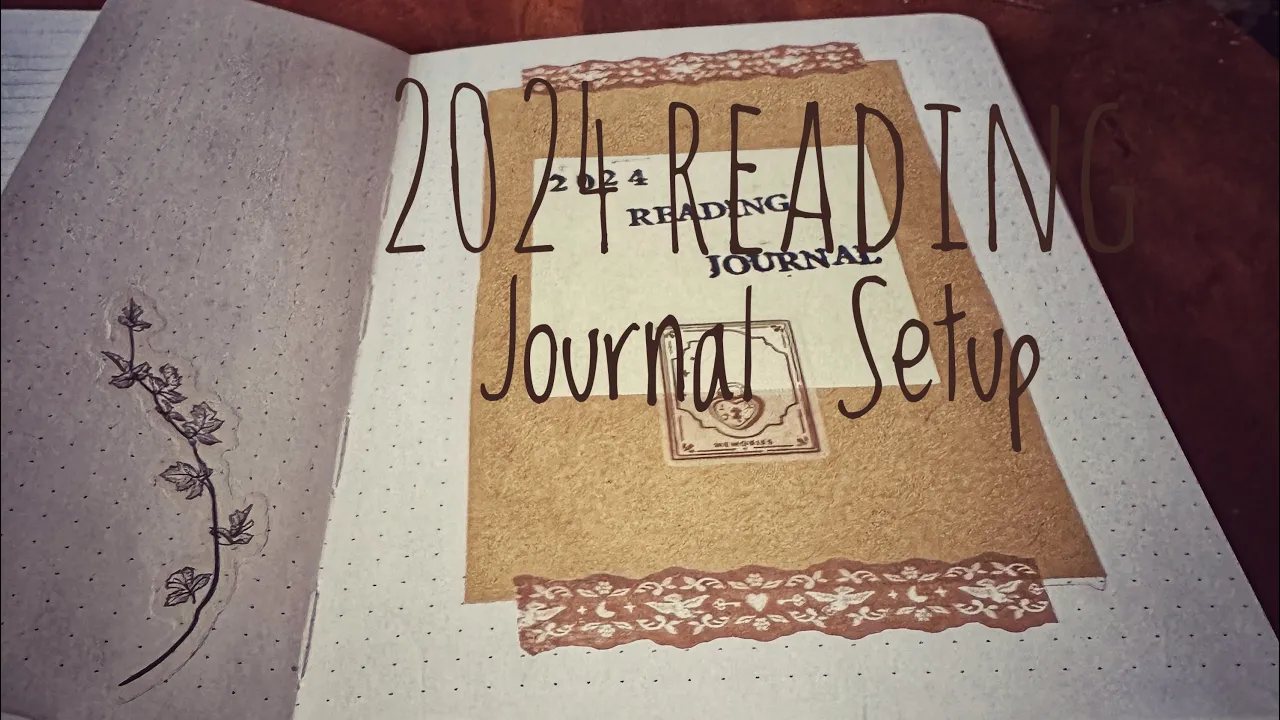 2024 READING
Journal Setup
2024
READING
JOURNAL
MEMORIES